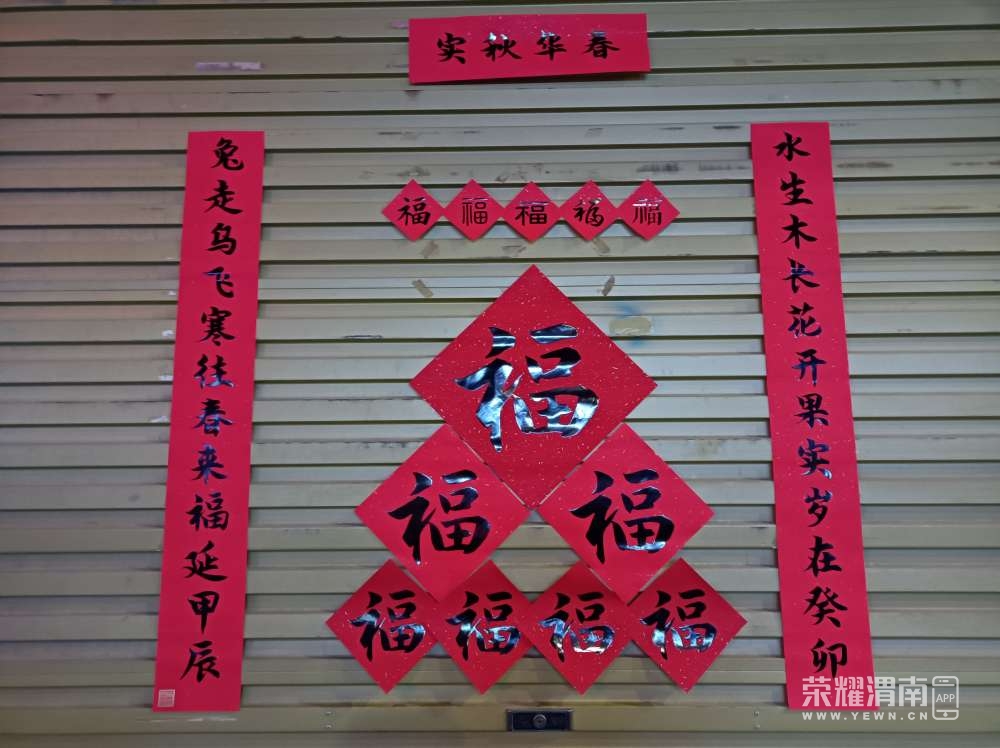 春华秋实
水生木长花开果实岁在癸卯
兔走乌飞寒往春来福延甲辰
福福福福福
福
福福
福福福福
荣耀渭南APP
WWW.YEWN.CN